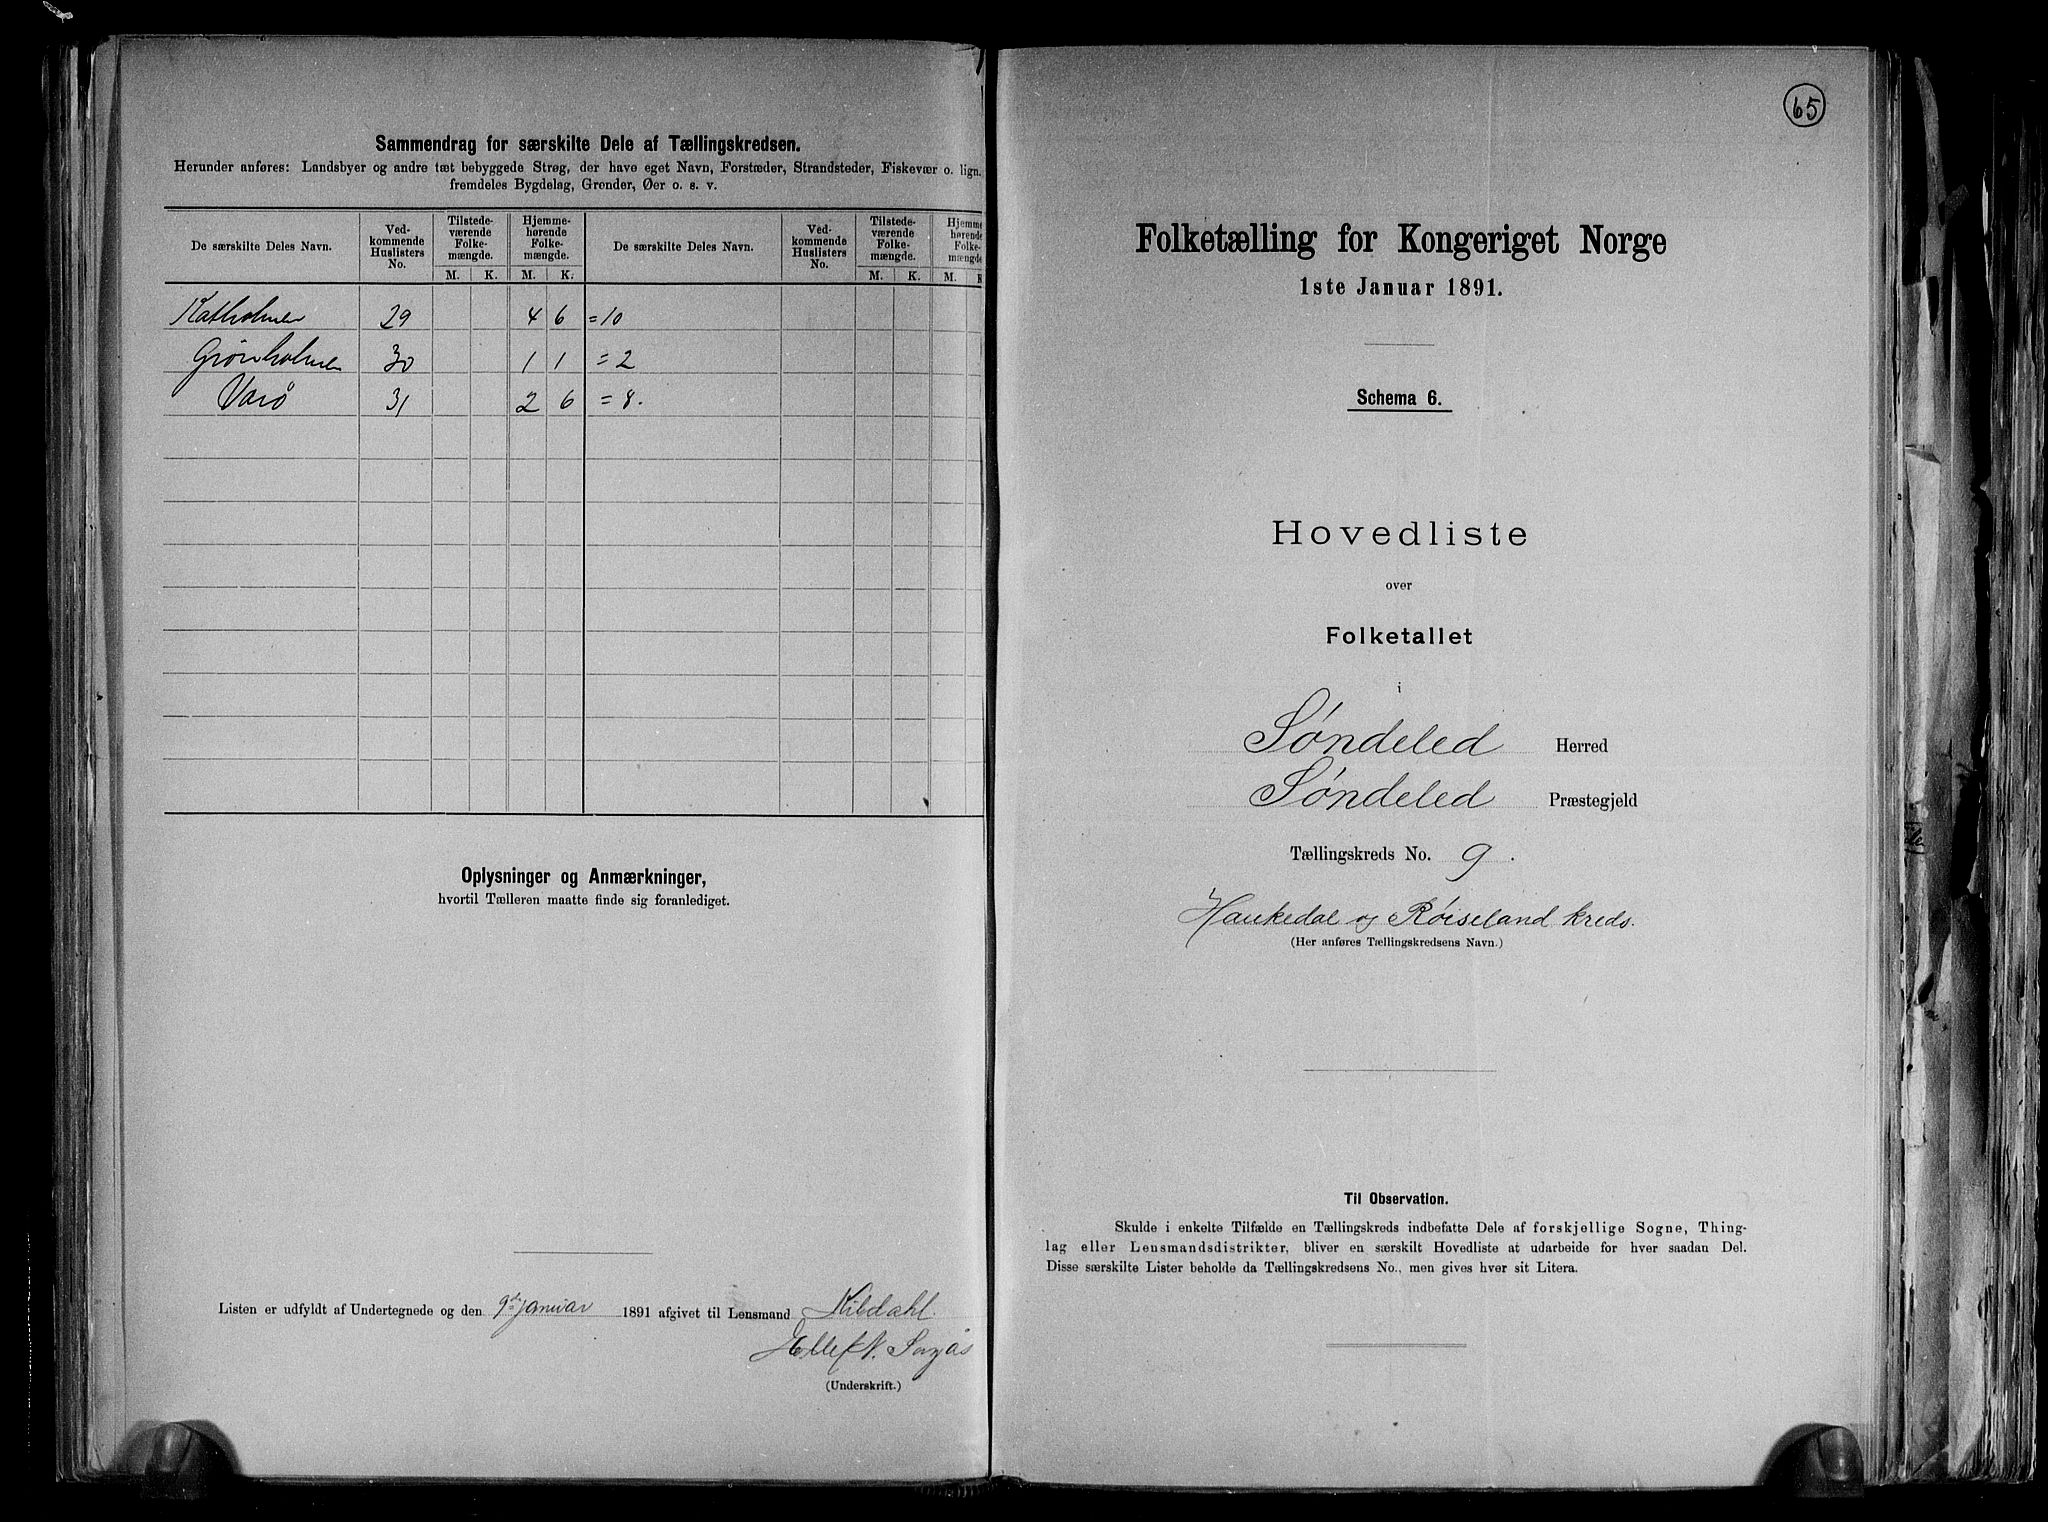 Sammendrag for særskilte Dele af Tællingskredsen.
Herunder anføres: Landsbyer og andre tæt bebyggede Strøg, der have eget Navn, Forstæder, Strandsteder, Fiskevær o. lign.
fremdeles Bygdelag, Grender, Øer o. s. v.
De særskilte Deles Navn. Ved-kommende Huslisters No. Tilstede-værende Folke-mængde. Hjemme-hørende Folke-mængde. De særskilte Deles Navn. Ved-kommende Huslisters No. Tilstede-værende Folke-mængde. Hjemme-hørende Folke-mængde
M. K. M. K. M. K. M. K
Katholmen 29 4 6 =10
Grønholmen 30 1 1 = 2
Varø 31 2 6 = 8.
Oplysninger og Anmærkninger,
hvortil Tælleren maatte finde sig foranlediget.
Listen er udfyldt af Undertegnede og den 9de januar 1891 afgivet til Lensmand Kildahl.
Ellef N.
(Underskrift.)
65
Folketælling for Kongeriget Norge
1ste Januar 1891.
Schema 6.
Hovedliste
over
Folketallet
i
Søndeled Herred
Søndeled Præstegjeld
Tællingskreds No. 9.
Haukedal og Røiseland kreds.
(Her anføres Tællingskredsens Navn.)
Til Observation.
Skulde i enkelte Tilfælde en Tællingskreds indbefatte Dele af forskjellige Sogne, Thing-
lag eller Lensmandsdistrikter, bliver en særskilt Hovedliste at udarbeide for hver saadan Del.
Disse særskilte Lister beholde da Tællingskredsens No., men gives hver sit Litera.